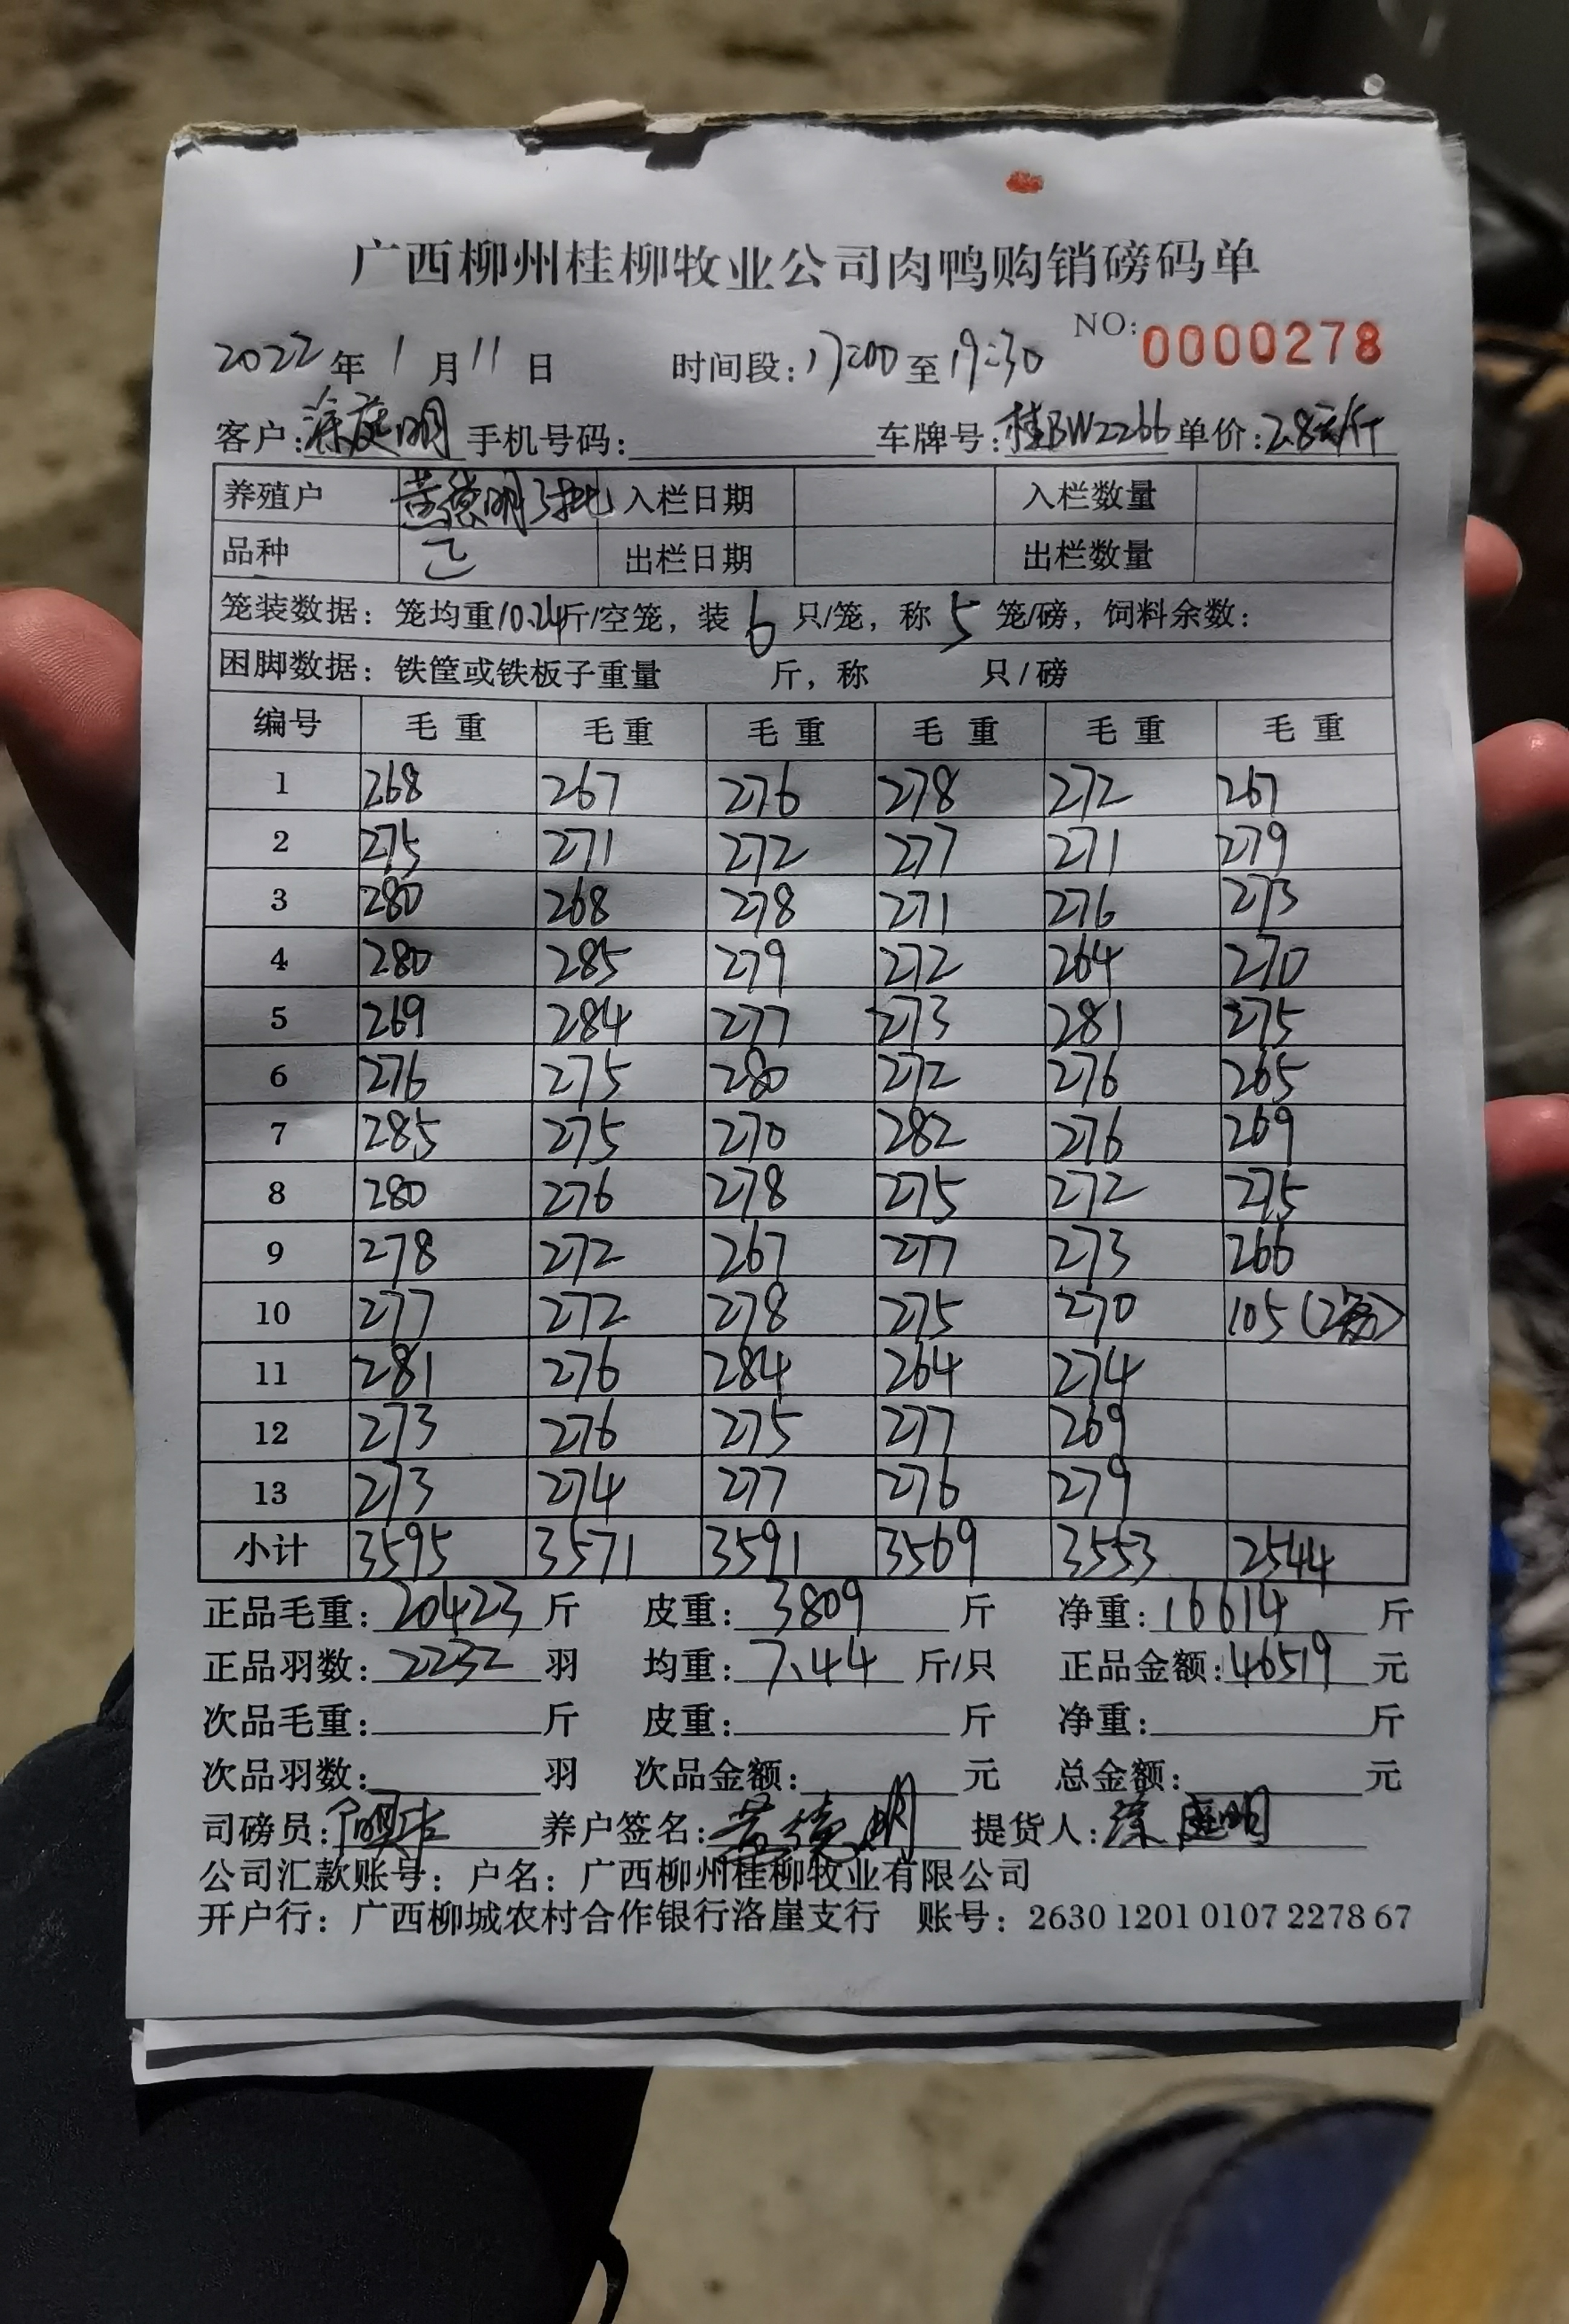 广西柳州桂柳牧业公司肉鸭购销磅码单
NO: 0000278
2022年1月11日 时间段:17:00至19:30
客户:涂庭明 手机号码: 车牌号:桂BW2266 单价:2.8元/斤
养殖户 黄德明3批 入栏日期 入栏数量
品种 出栏日期 出栏数量
笼装数据:笼均重10.24斤/空笼,装6只/笼,称5笼/磅,饲料余数:
困脚数据:铁筐或铁板子重量 斤,称 只/磅
编号 毛重 毛重 毛重 毛重 毛重 毛重
1 268 267 276 278 272 267
2 275 271 272 277 271 279
3 280 268 278 271 276 273
4 280 285 279 272 264 270
5 269 284 277 273 281 275
6 276 275 280 272 276 265
7 285 275 270 282 276 269
8 280 276 278 275 272 275
9 278 272 267 277 273 266
10 277 272 278 275 270 105(2笼)
11 281 276 284 264 274
12 273 276 275 277 269
13 273 274 277 276 279
小计 3595 3571 3591 3569 3553 2544
正品毛重:20423斤 皮重:3809斤 净重:16614斤
正品羽数:2232羽 均重:7.44斤/只 正品金额:46519元
次品毛重: 斤 皮重: 斤 净重: 斤
次品羽数: 羽 次品金额: 元 总金额: 元
司磅员: 养户签名:黄德明 提货人:涂庭明
公司汇款账号:户名:广西柳州桂柳牧业有限公司
开户行:广西柳城农村合作银行洛崖支行 账号:2630 1201 0107 2278 67